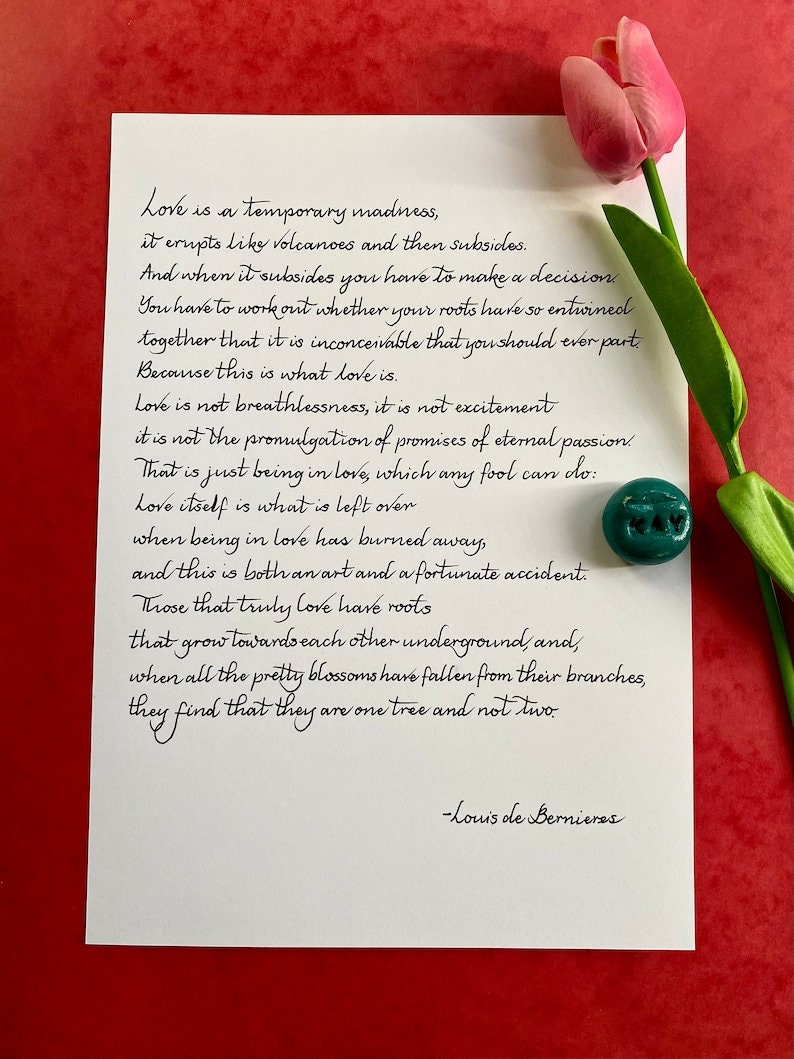 Love is a temporary madness,
it erupts like volcanoes and then subsides.
And when it subsides you have to make a decision.
You have to work out whether your roots have so entwined
together that it is inconceivable that you should ever part.
Because this is what love is.
Love is not breathlessness, it is not excitement
it is not the promulgation of promises of eternal passion.
That is just being in love, which any fool can do:
Love itself is what is left over
when being in love has burned away,
and this is both an art and a fortunate accident.
Those that truly love have roots
that grow towards each other underground, and,
when all the pretty blossoms have fallen from their branches,
they find that they are one tree and not two.
KAY
-Louis de Bernieres